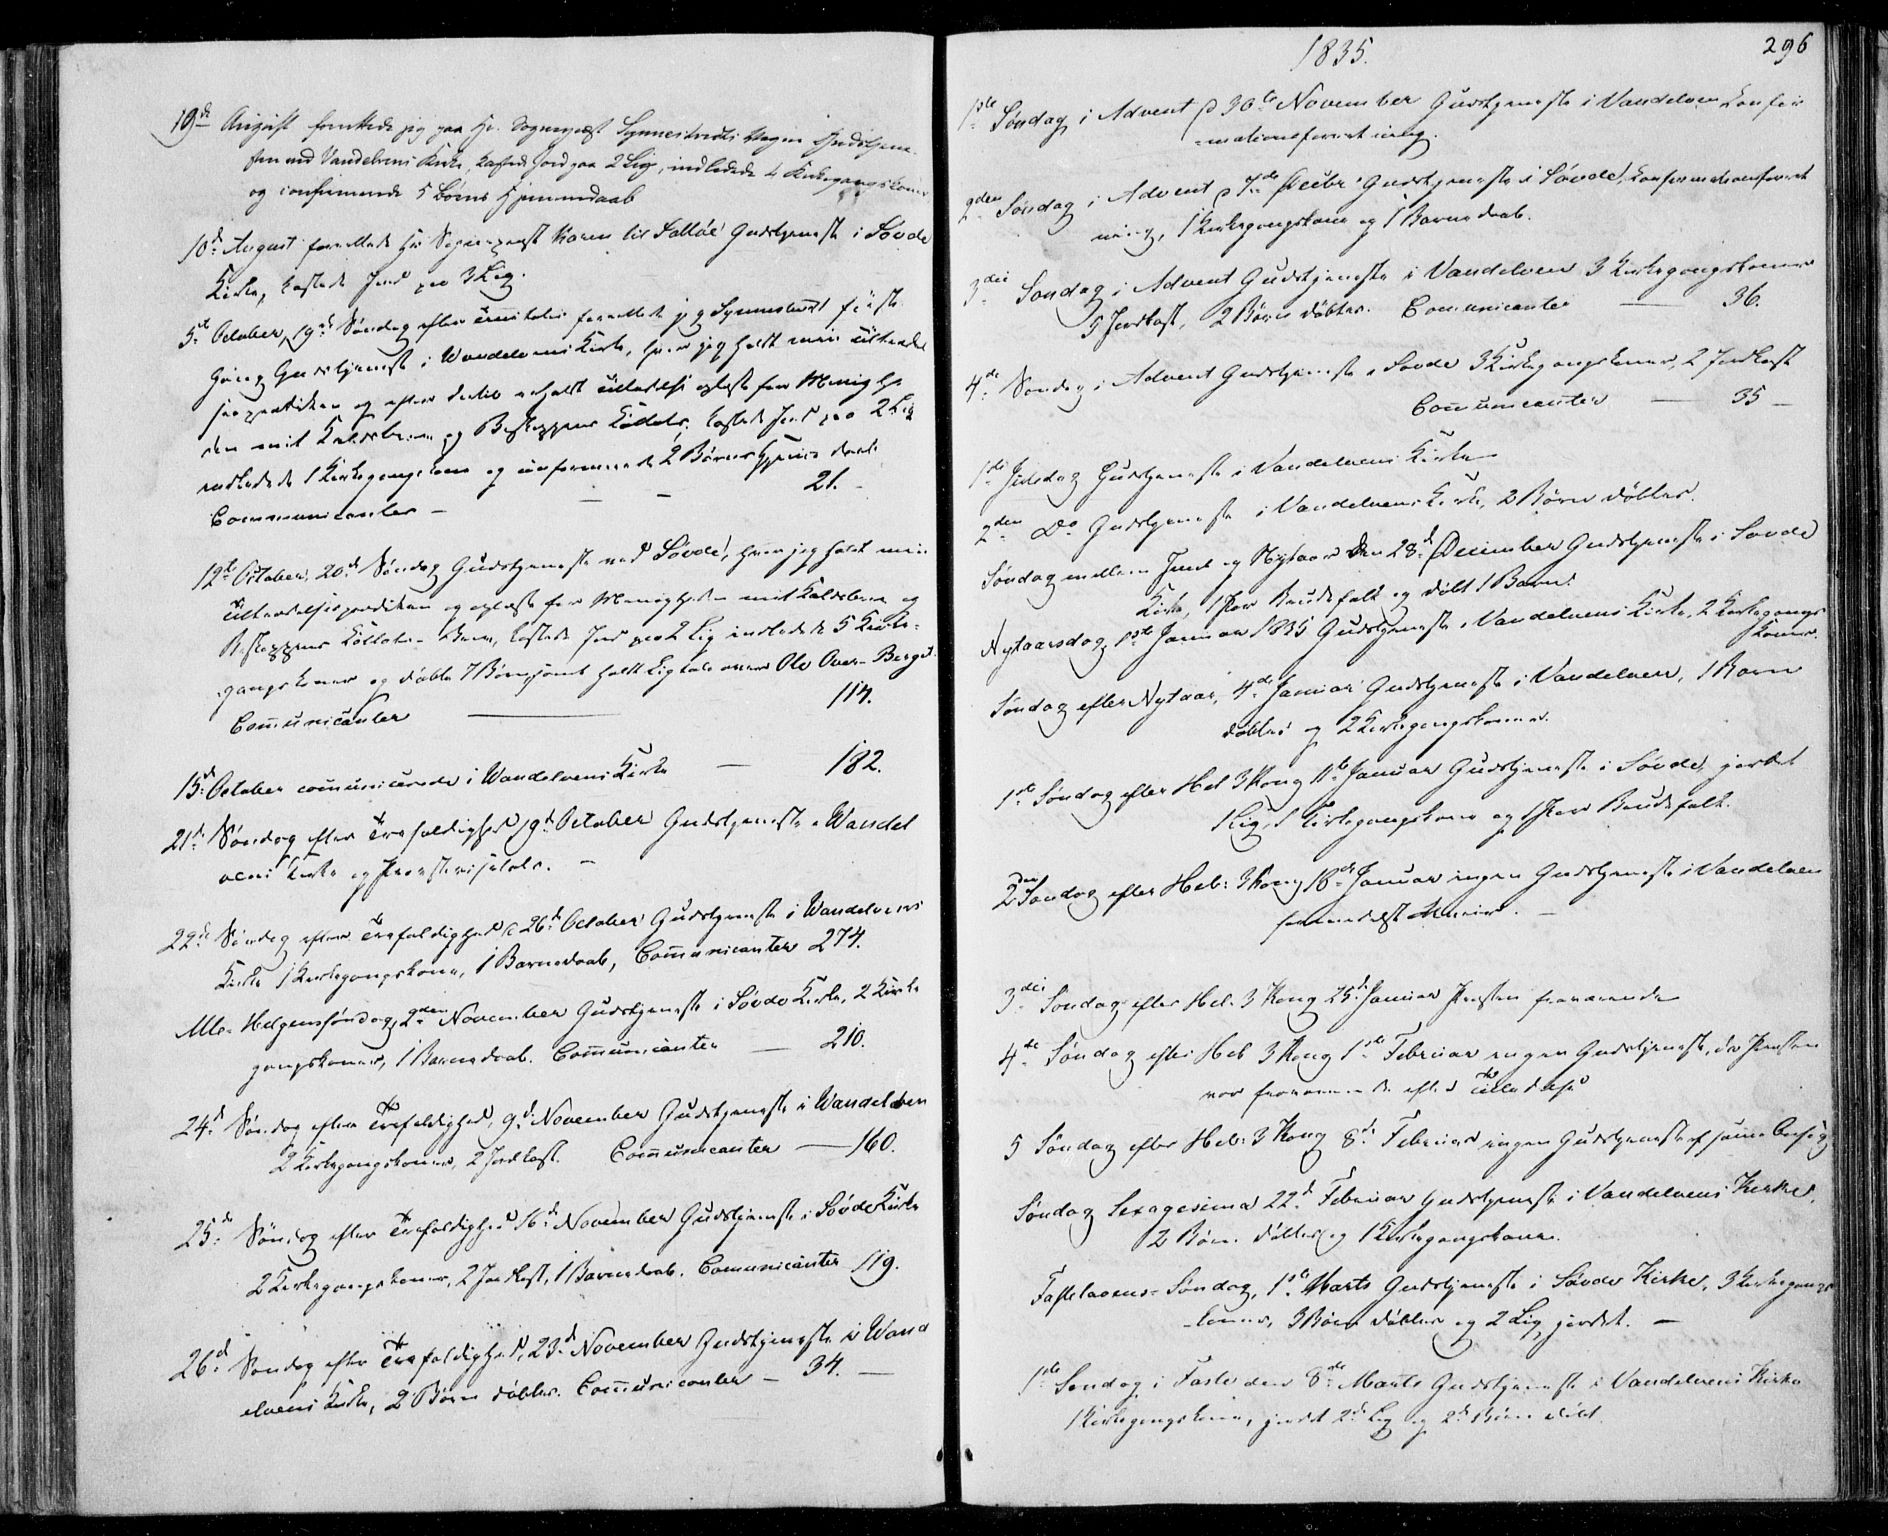 19de August forrettede jeg paa Hr. Sognepræst Synnestvedts Vegne Gudstjene-
sten ved Vandelvens Kirke, kastede Jord paa 2 Lig, indledede 4 Kirkegangskoner
og confirmerede 5 Børns Hjemmedaab
10d August forrettede Hr Sognepræst Koren til Gudstjeneste i Søvde
Kirke, kastede Jord paa 3 Lig.
5t October, 19d Søndag efter Trinitatis forrettet jeg Synnestvedt første
Gang Gudstjeneste i Wandelvens Kirke, hvor jeg holdt min
og efter dertil erholdt Tilladelse oplæste for Menighe-
den mit Kaldsbrev og Bispens Collats, kastede Jord paa 2 Lig
indledede 1 Kirkegangskone og confirmerede 2 Børns Hjemmedaab
Communicanter — — — 21. -
12te October, 20d Søndag Gudstjeneste ved Søvde, hvor jeg holdt min
Tiltrædelsesprædiken og oplæste for Menigheden mit Kaldsbrev og
Bispens Collats- kastede Jord paa 2 Lig indledede 5 Kirke-
gangskoner og døbte 7 Børn, samt holdt Ligtale over Ole Over-Berget.
Com̄unicanter — 114.
15d October com̄unicerede i Wandelvens Kirke — 182.
21d Søndag efter Trefoldighed 19d October Gudstjeneste i Wandel
vens Kirke og
22d Søndag efter Trefoldighed 26d October Gudstjeneste i Wandelvens
Kirke 1 Kirkegangskone, 1 Barnedaab, Com̄unicanter 274.
Alle-Helgenssøndag, 2den November Gudstjeneste i Søvde Kirke, 2 Kirke
gangskoner, 1 Barnedaab. Com̄unicanter — 210.
24d Søndag efter Trefoldighed, 9d November Gudstjeneste i Wandelven
2 Kirkegangskoner, 2 Jordkast. Com̄unicanter — 160.
25d Søndag efter Trefoldighed 16d November Gudstjeneste i Søvde Kirke
2 Kirkegangskoner, 2 Jordkast, 1 Barnedaab. Communicanter 119.
26d Søndag efter Trefoldighed, 23d November Gudstjeneste i Wand
elvens Kirke, 2 Børn døbtes. Com̄unicanter — 34. —
1835.
296
1ste Søndag i Advent 30te November Gudstjeneste i Vandelven, Confir
-mationsforretning.
2den Søndag i Advent 7de Decbr Gudstjeneste i Søvde, Confirmationsforret
ning, 1 Kirkegangskone og 1 Barnedaab.
3die Søndag i Advent Gudstjeneste i Vandelven 3 Kirkegangskoner
5 Jordkast, 2 Børn døbtes. Communicanter — 36.
4de Søndag i Advent Gudstjeneste i Søvde 3 Kirkegangskoner, 2 Jordkast
Com̄unicanter — 35 —
1ste Juledag Gudstjeneste i Vandelvens Kirke
2den Do Gudstjeneste i Vandelvens Kirke, 2 Børn døbtes.
Søndag mellem Juul og Nytaar den 28d December Gudstjeneste i Søvde
Kirke, 1 Par Brudefolk og døbt 1 Barn.
Nytaarsdag, 1ste Januar 1835 Gudstjeneste i Vandelvens Kirke, 2 Kirkegangs
koner.
Søndag efter Nytaar, 4de Januar Gudstjeneste i Vandelven, 1 Barn
døbtes og 2 Kirkegangskoner.
1ste Søndag efter Hel 3 Kong 11te Januar Gudstjeneste i Søvde, jordet
1 Lig, 1 Kirkegangskone og 1 Par Brudefolk.
2den Søndag efter Hel: 3 Kong 18de Januar ingen Gudstjeneste i Vandelven
formedelst
3die Søndag efter Hel: 3 Kong 25d Januar Præsten fraværende
4de Søndag efter Hel 3 Kong 1ste Februar ingen Gudstjeneste, da Præsten
var fraværende efter Tilladelse
5 Søndag efter Hel: 3 Kong 8de Februar ingen Gudstjeneste af samme
Søndag Sexagesima 22d Februar Gudstjeneste i Vandelvens Kirke,
2 Børn døbtes og 1 Kirkegangskone.
Fastelavens-Søndag, 1ste Marts Gudstjeneste i Søvde Kirke, 3 Kirkegangs
koner, 3 Børn døbtes og 2 Lig jordet. —
1ste Søndag i Faste den 8de Marts Gudstjeneste i Vandelvens Kirke
1 Kirkegangskone, jordet 2d Lig og 2d Børn døbt.